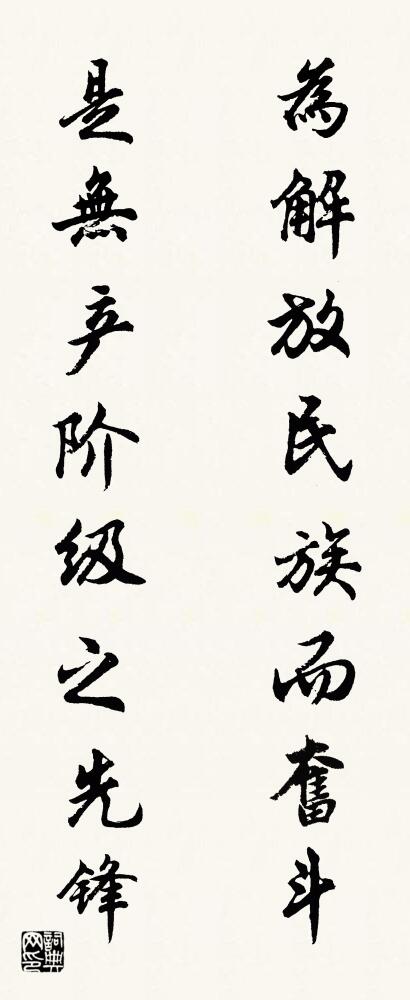 為解放民族而奮斗
是無产阶级之先锋
詞典网印